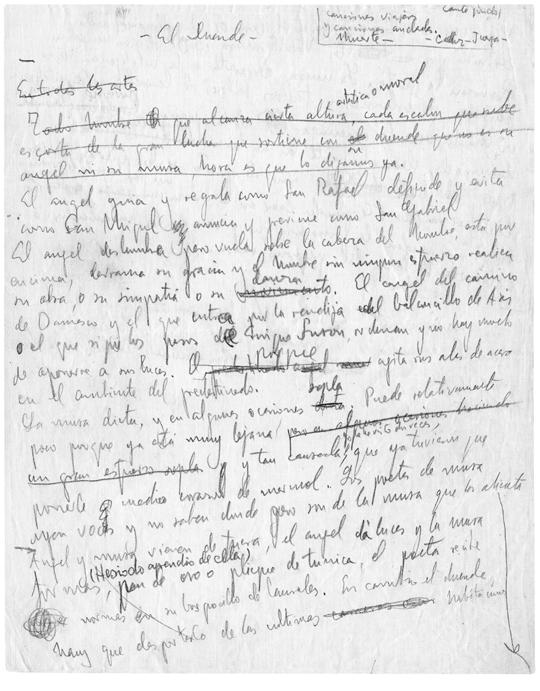 canciones viejas
y canciones andadas.
Muerte -
- El Duende -
Entrodas las artes
artística o moral
Todo hombre que alcanza cierta altura, cada escalón que sube
es a costa de la gran lucha que sostiene con el duende que no es su
angel ni su musa, hora es que lo digamos ya.
El angel guia y regala como San Rafael defiende y evita
como San Miguel y anuncia y previene como San Gabriel
El angel deslumbra pero vuela sobre la cabeza del hombre, está por
encima, derrama su gracia y el hombre sin ningun esfuerzo realiza
su obra o su simpatia o su danza
de Damasco y el que entra por la rendija del balconcillo de Asis
o el que sigue los pasos de Enrique Suson, ordenan y no hay modo
de oponerse a sus luces. agita sus alas de acero
en el ambiente del predestinado.
La musa dicta, y en algunas ocasiones sopla. Puede relativamente
poco porque ya está muy lejana
un gran esfuerzo sopla y tan cansada, que ya tuvieron que
ponerle medio corazon de marmol. Los poetas de musa
oyen voces y no saben donde pero son de la musa que los alienta
Angel y musa vienen de fuera, el angel da luces y la musa
formas, (Hesiodo aprendio de ella)
pan de oro o pliegue de tunica, el poeta recibe
normas en su bosquecillo de laureles. En cambio el duende,
hay que despertarlo de las ultimas habitaciones